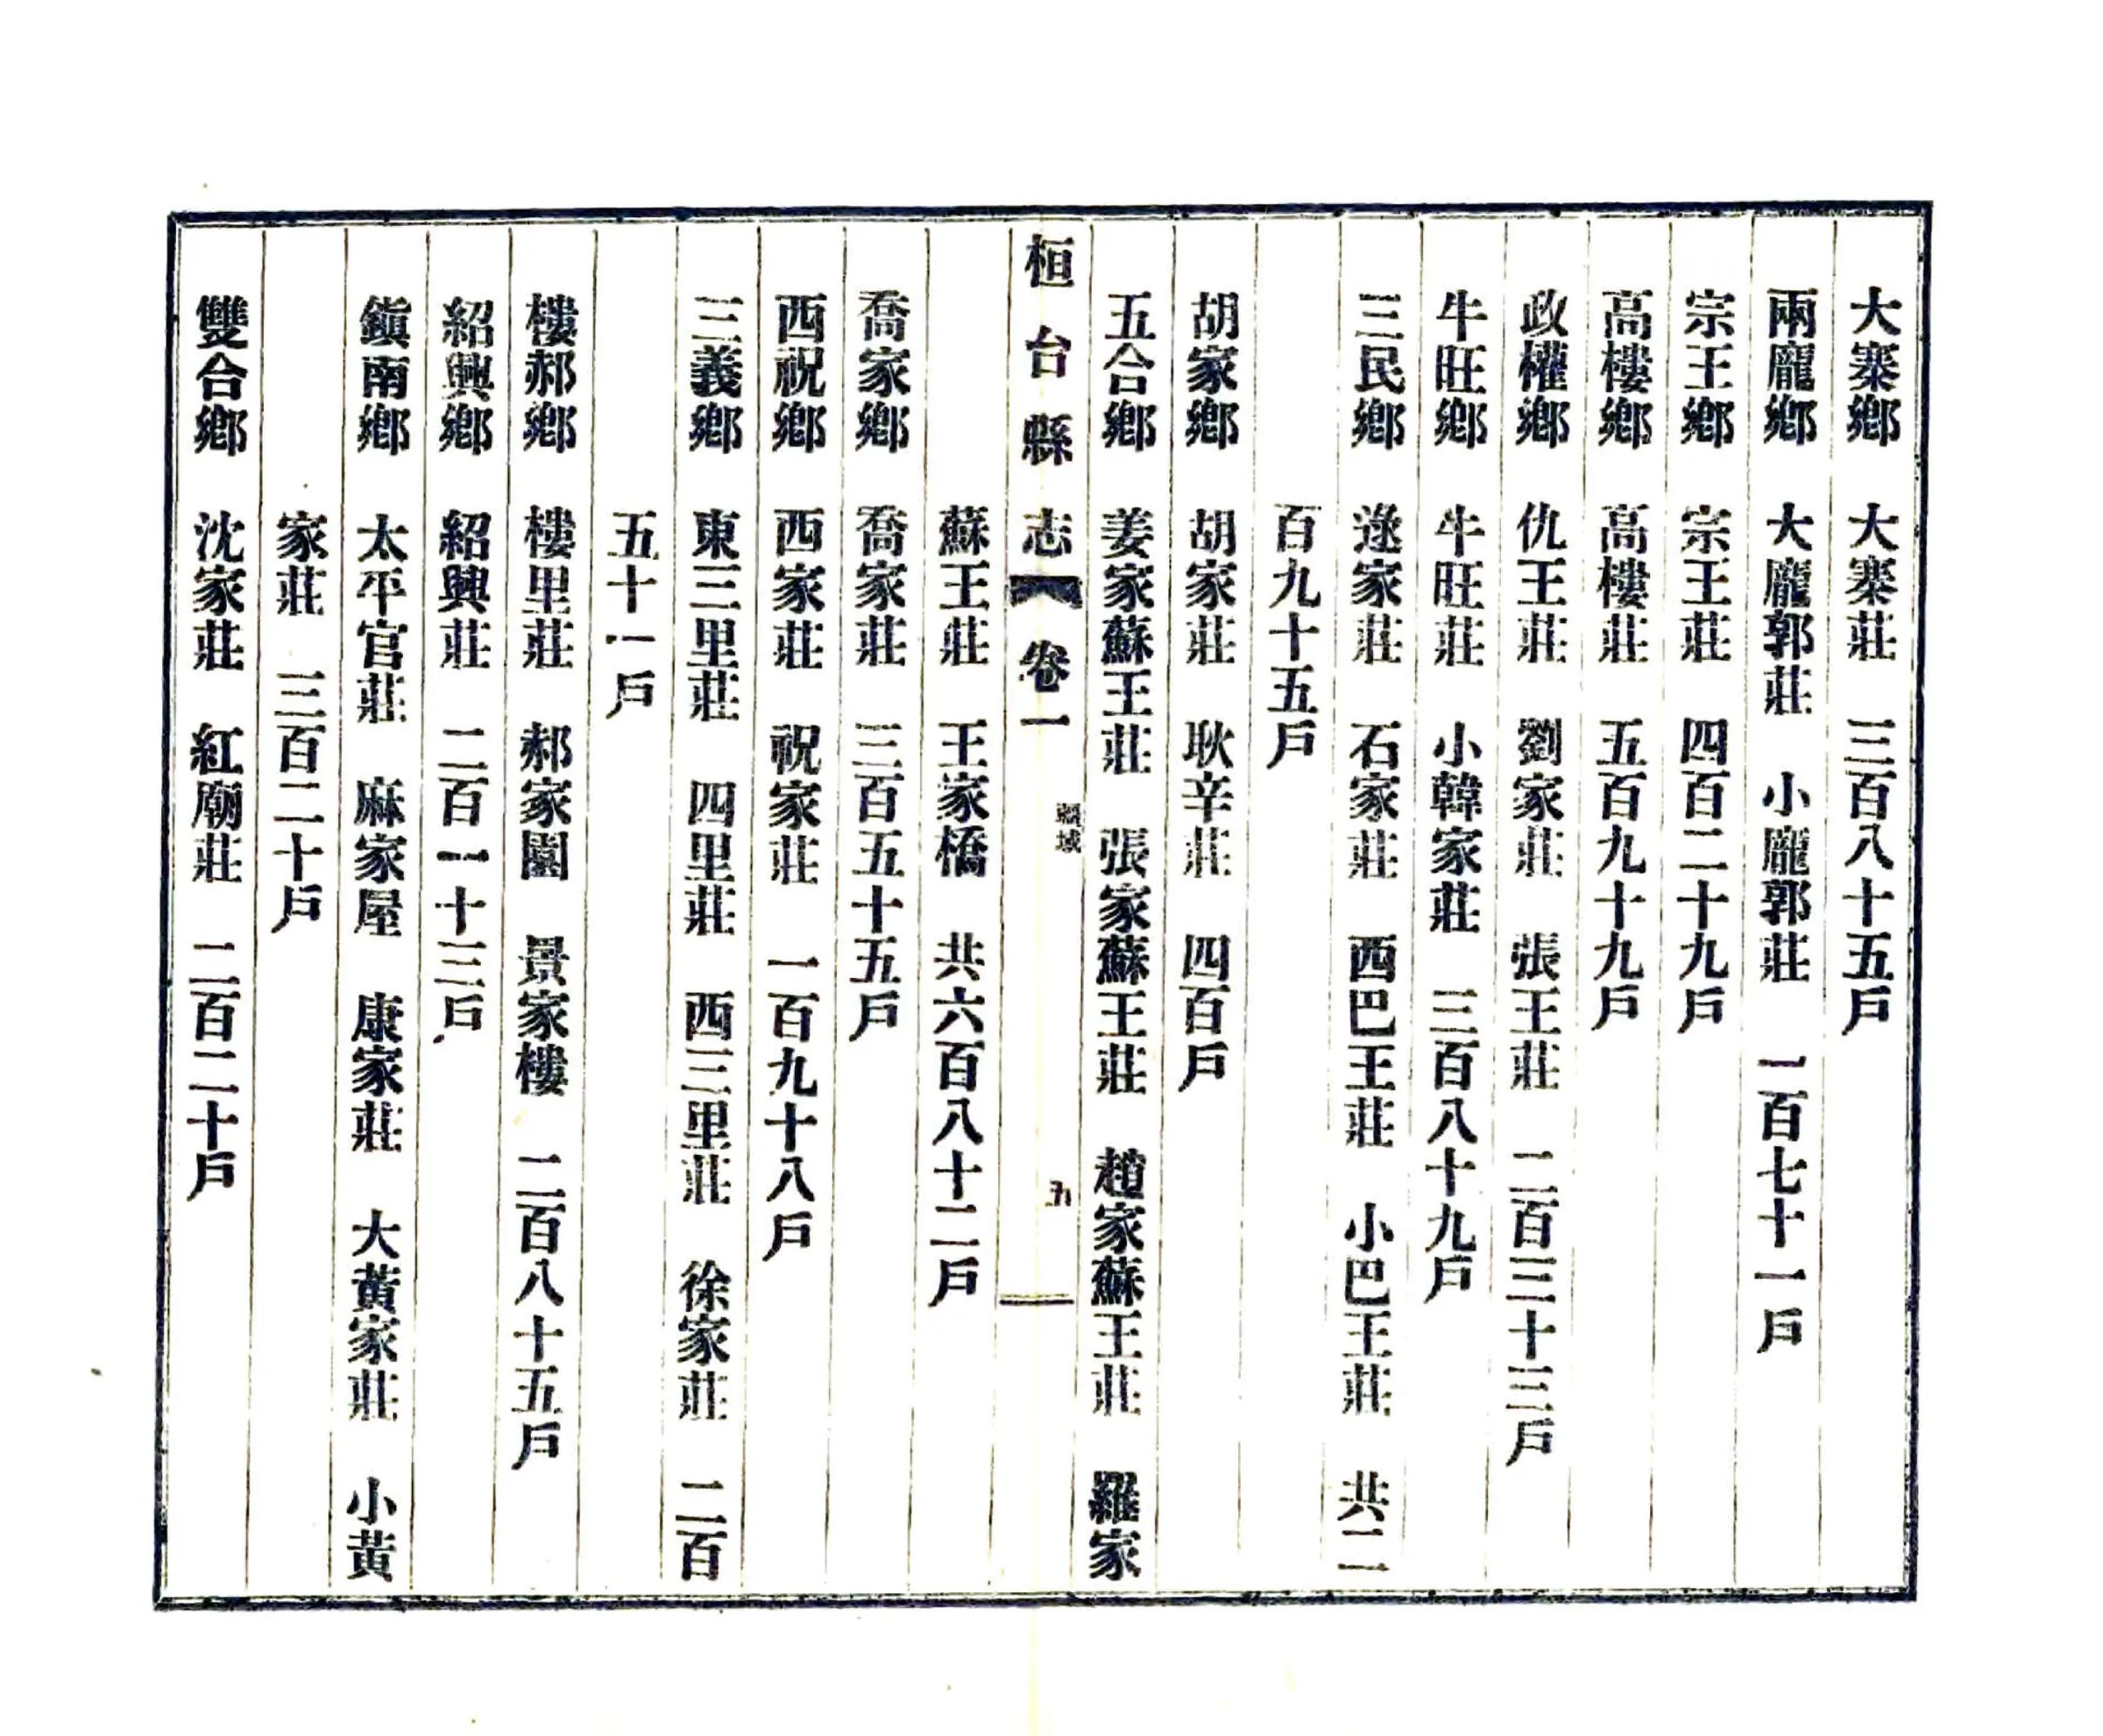 大寨鄉　大寨莊　三百八十五戶
兩龐鄉　大龐郭莊　小龐郭莊　一百七十一戶
宗王鄉　宗王莊　四百二十九戶
高樓鄉　高樓莊　五百九十九戶
政權鄉　仇王莊　劉家莊　張王莊　二百三十三戶
牛旺鄉　牛旺莊　小韓家莊　三百八十九戶
三民鄉　逯家莊　石家莊　西巴王莊　小巴王莊　共二
百九十五戶
胡家鄉　胡家莊　耿辛莊　四百戶
五合鄉　姜家蘇王莊　張家蘇王莊　趙家蘇王莊　羅家
桓台縣志　卷一　疆域　五
蘇王莊　王家橋　共六百八十二戶
喬家鄉　喬家莊　三百五十五戶
西祝鄉　西家莊　祝家莊　一百九十八戶
三義鄉　東三里莊　四里莊　西三里莊　徐家莊　二百
五十一戶
樓郝鄉　樓里莊　郝家園　景家樓　二百八十五戶
紹興鄉　紹興莊　二百一十三戶
鎮南鄉　太平官莊　麻家屋　康家莊　大黃家莊　小黃
家莊　三百二十戶
雙合鄉　沈家莊　紅廟莊　二百二十戶